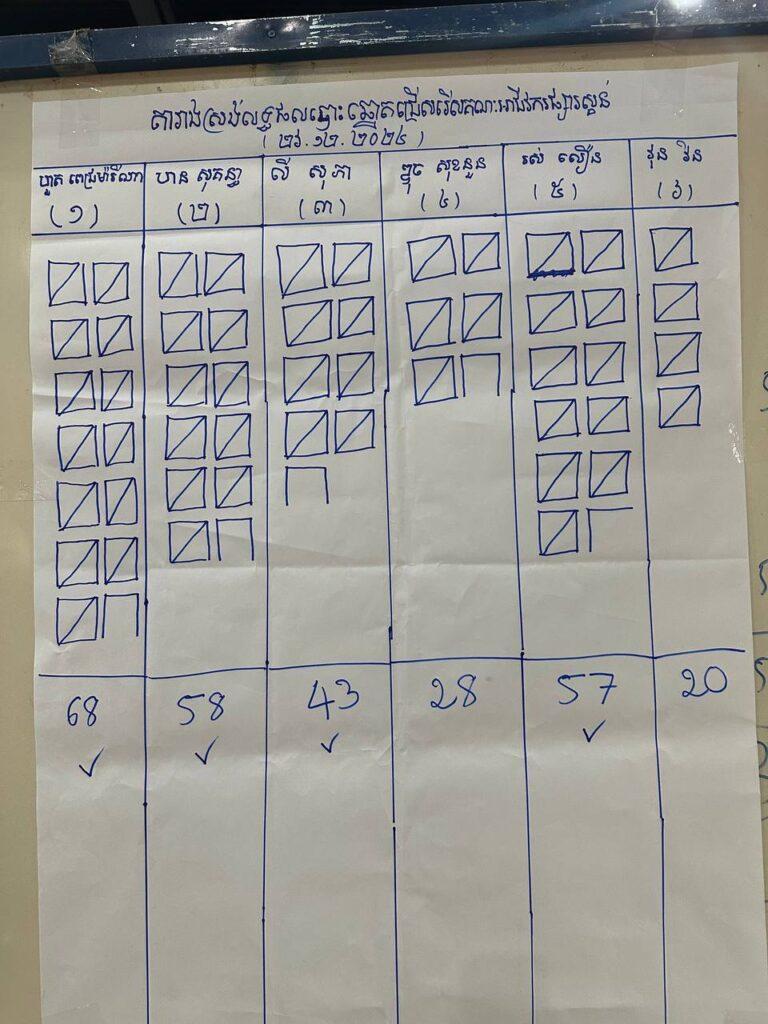 តារាងស្រង់លទ្ធផលបោះឆ្នោតជ្រើសរើសគណៈអាជីវករផ្សារស្គន់
(២៦.១២.២០២៤)
ហួត ពេជ្រម៉ារីណា ហាន សុគន្ធា លី សុភា សុខនួន រស់ សឿន វុន
(១) (២) (៣) (៤) (៥) (៦)
68 58 43 28 57 20